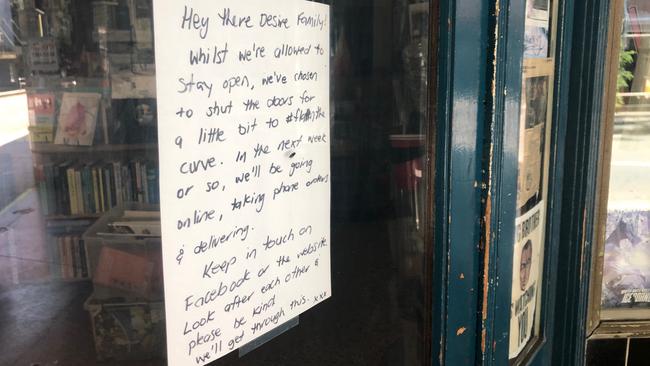 Hey there Desire Family!
Whilst we're allowed to
stay open, we've chosen
to shut the doors for
a little bit to #flattenthe
curve. In the next week
or so, we'll be going
online, taking phone orders
& delivering.
Keep in touch on
Facebook or the website
Look after each other &
please be kind
we'll get through this. xxx
BROTHER
WATCHING
YOU